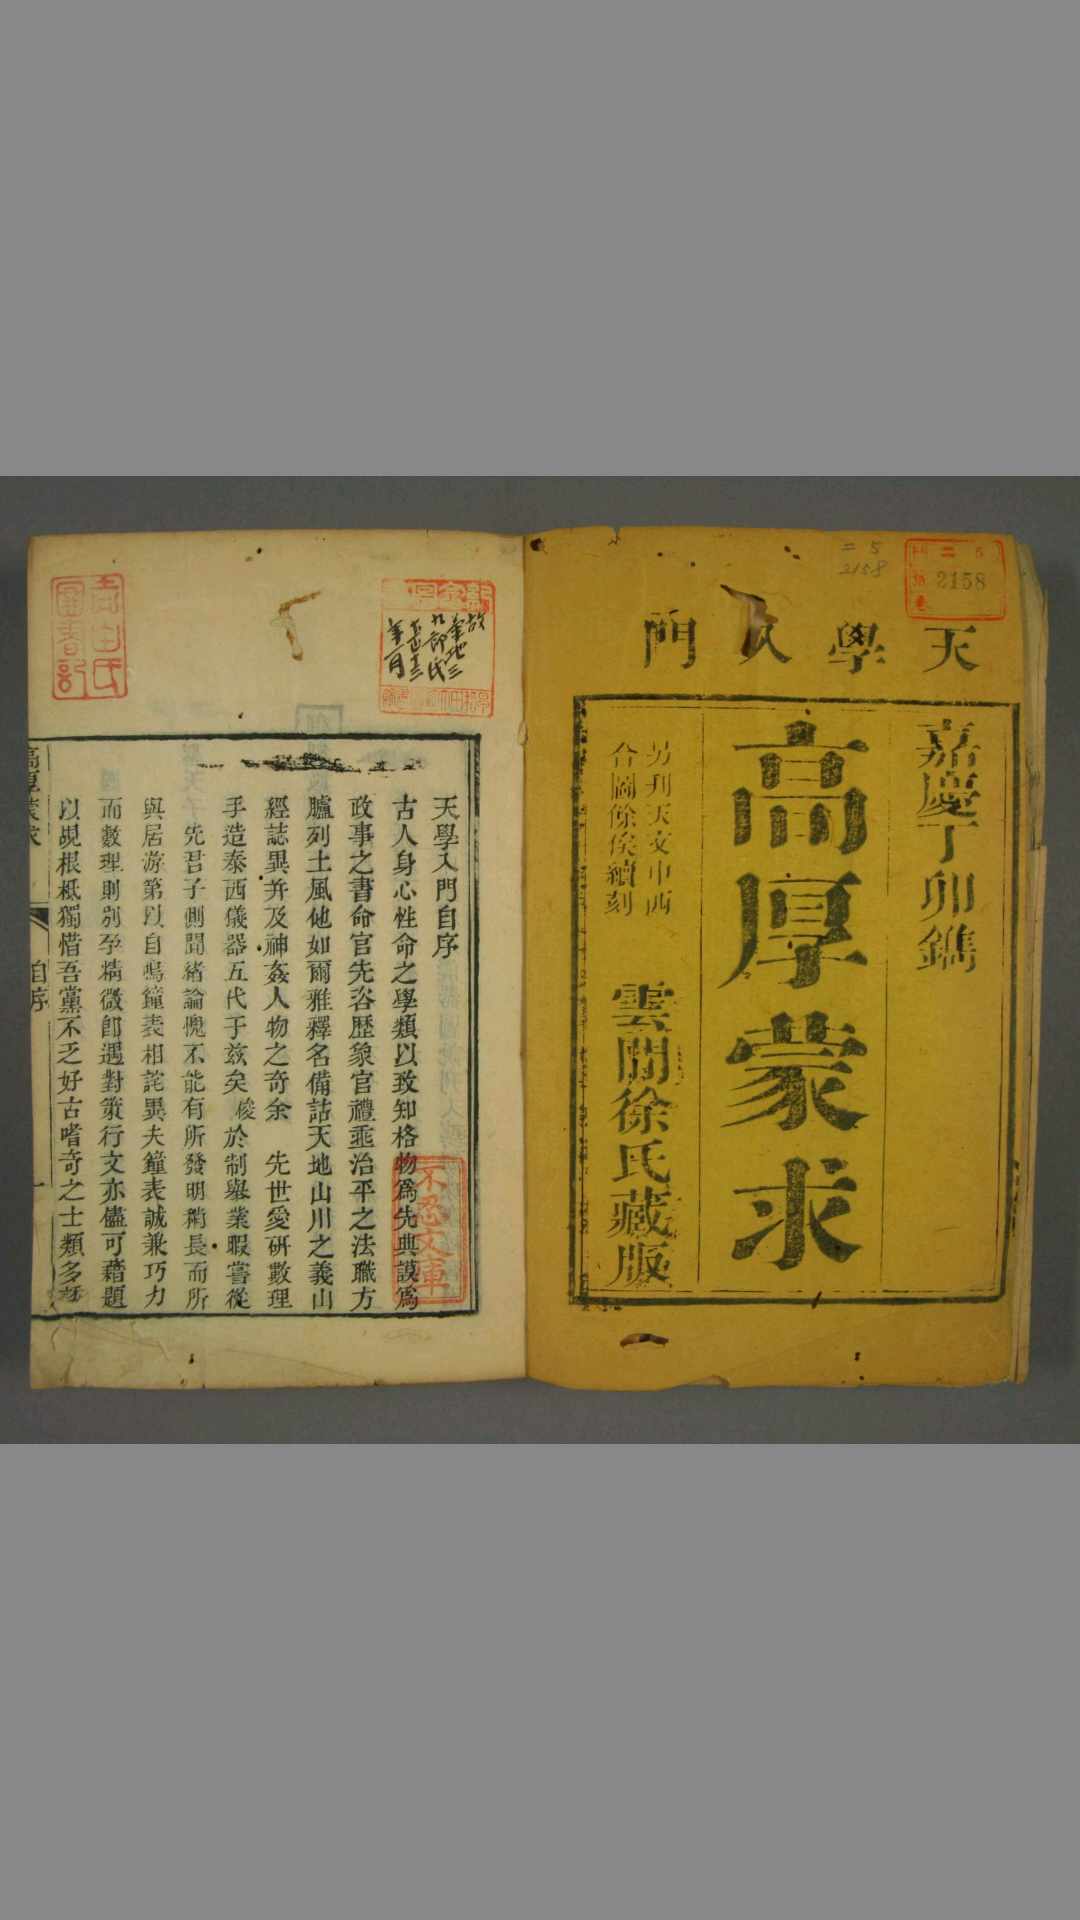 二 5
2158
二 5
2158
天學入門
嘉慶丁卯鐫
高厚蒙求
另刊天文中西
合圖條俟續刻
雲間徐氏藏版
故菊地三
九郎氏
年月
不忍文庫
天學入門自序
古人身心性命之學類以致知格物爲先典謨爲
政事之書命官先咨歷象官禮垂治平之法職方
臚列土風他如爾雅釋名備詁天地山川之義山
經誌異并及神姦人物之奇余 先世愛研數理
手造泰西儀器五代于兹矣 俊於制舉業暇嘗從
先君子側聞緒論愧不能有所發明稍長而所
與居游第以自鳴鐘表相詫異夫鐘表誠兼巧力
而數理則別孕精微卽遇對策行文亦儘可藉題
以覘根柢獨惜吾黨不乏好古嗜奇之士類多
高厚蒙求
自序
一
圖書記